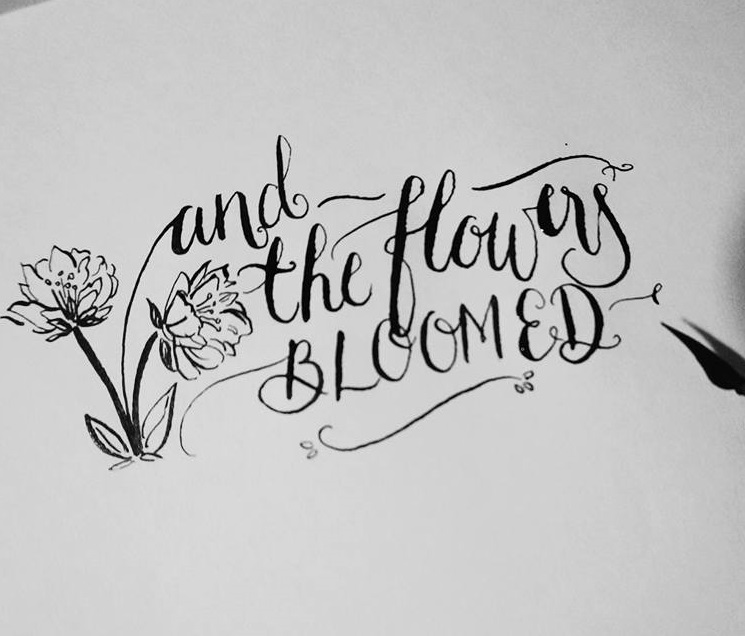 and
the flowers
BLOOMED